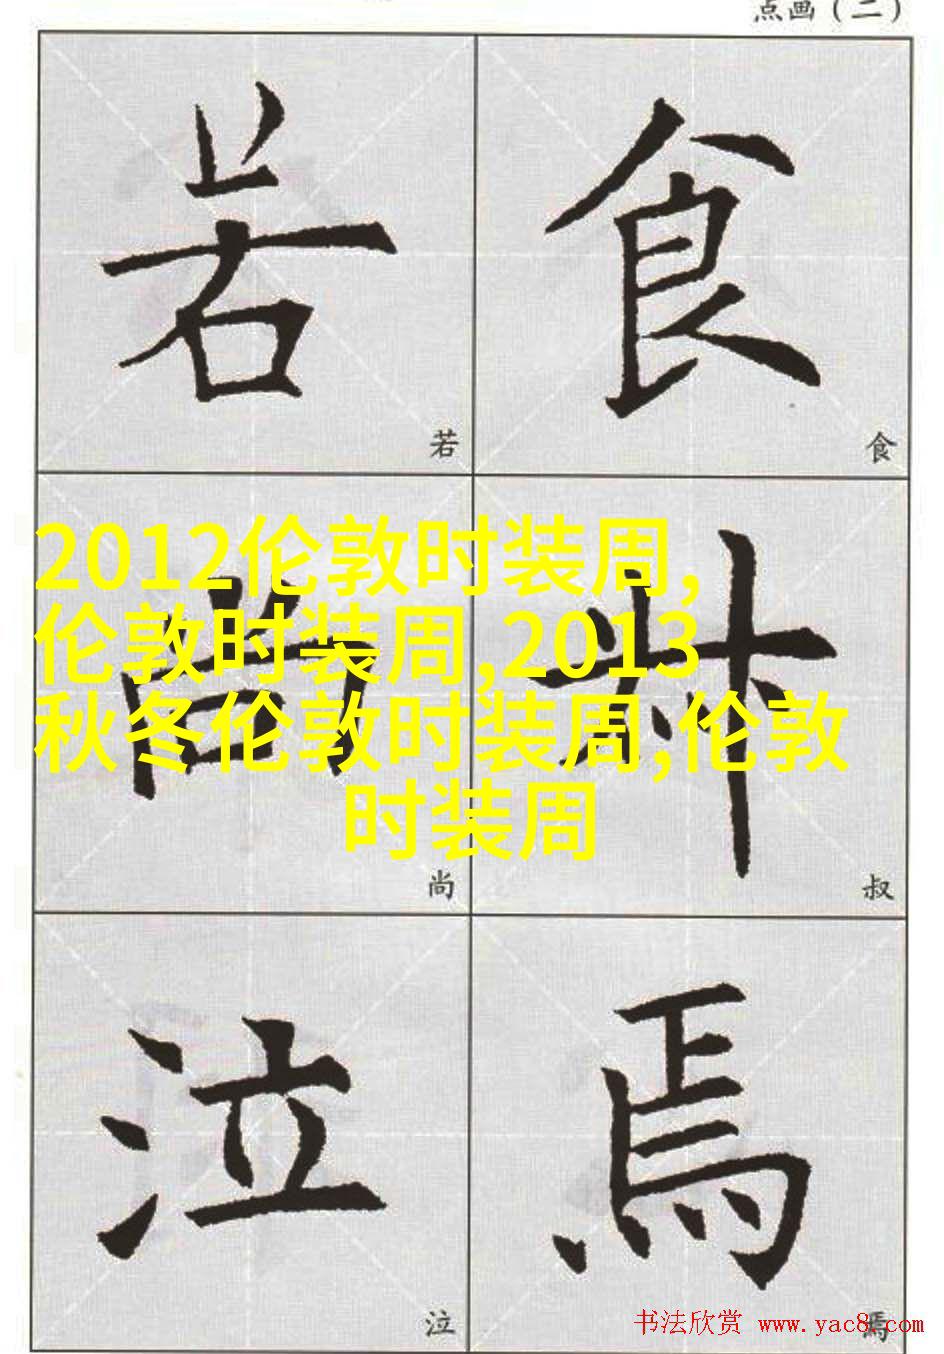 点画（二）
若 食
若 食
2012伦敦时装周,
伦敦时装周,2013
秋冬伦敦时装周,伦敦
时装周
尚 叔
尚 叔
泣 焉
泣 焉
书法欣赏 www.yac8.com